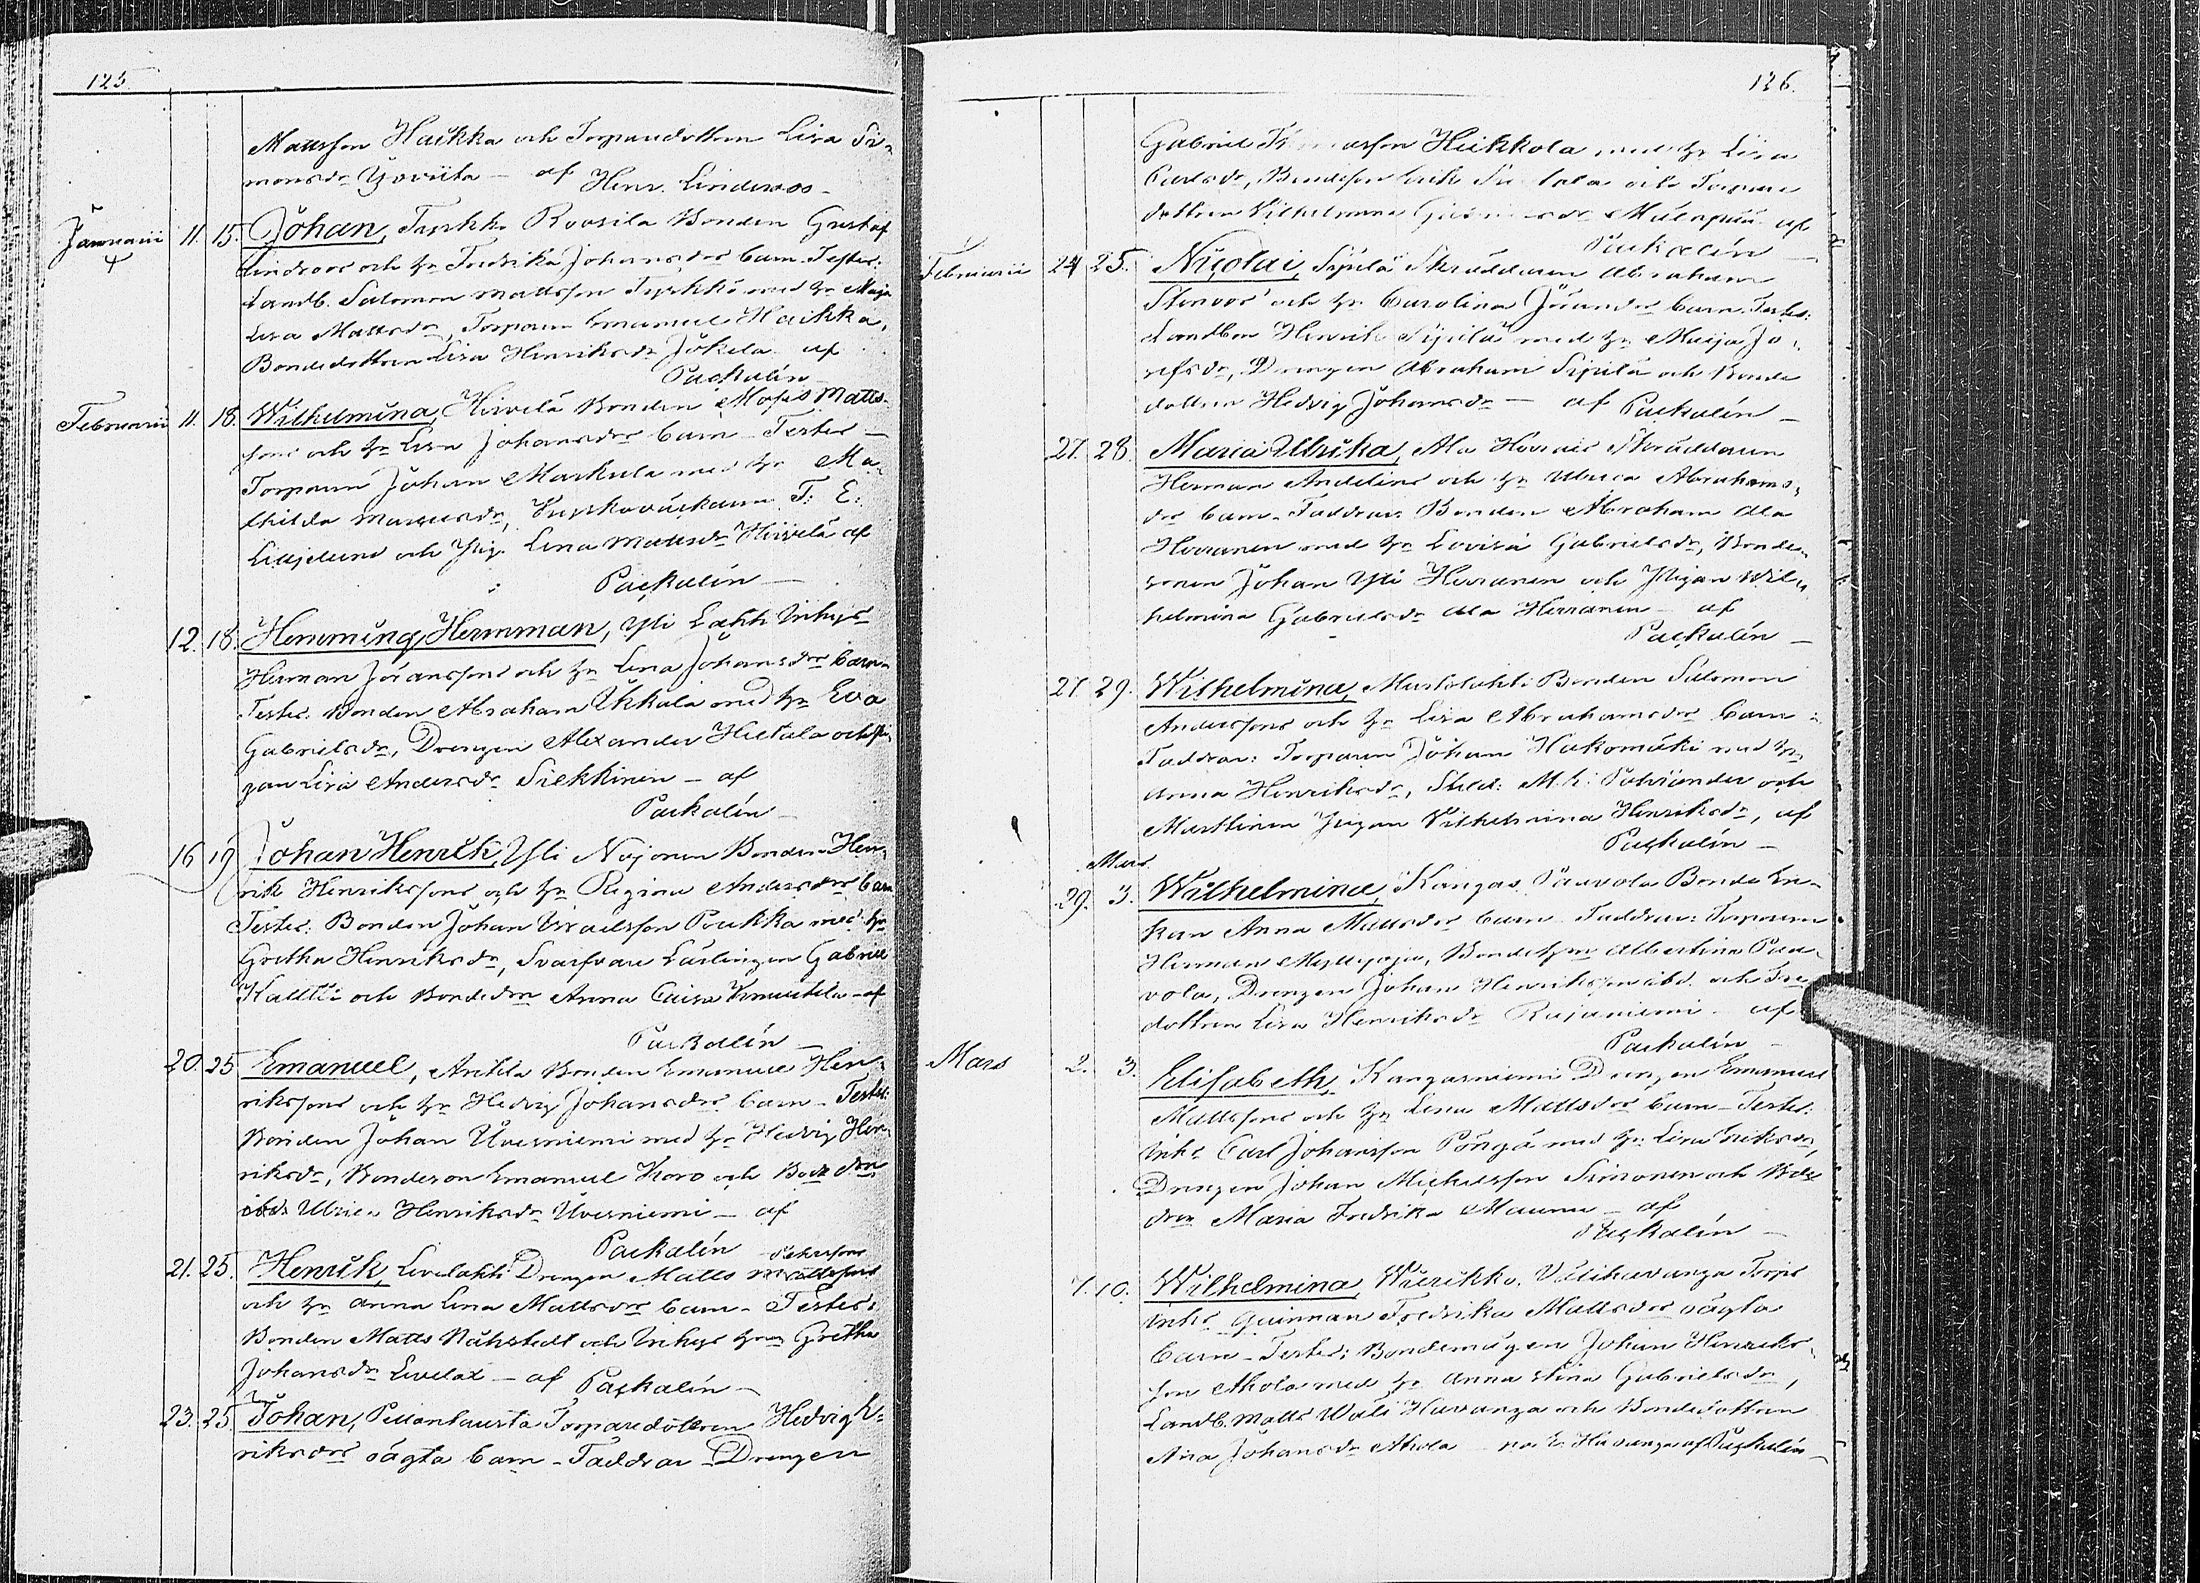 125
Mattsson Haikka och Torparedottren Lisa Si-
monsdr af Henr. Lindroos
Januarii 11. 15. Johan, Tyrkkö Roosila Bonden Gustaf
Lindroos och h. Fredrika Johansdrs barn. Testes:
Landb. Salomon Mattsson Tyrkkö med h. Maja
Lisa Mattsdr, Torparen Emanuel Haikka,
Bondedottren Lisa Henriksdr Jokela af
Packalén
Februarii 11. 18. Wilhelmina, Hirvelä Bonden Mosis Matts-
sons och h. Lisa Johansdrs barn Testes
Torparen Johan Markula med h. Ma-
thilda T: E:
Liljelund och Pig. Lena Mattsdr Hirvelä af
Packalén
12. 18. Hemming Hermman, Yli Lahti Inhys
Herman Göranssons och h. Lena Johansdrs barn
Testes. Bonden Abraham Ukkola med h. Eva
Gabrielsdr, Drengen Alexander Hietala och Pi-
gan Lisa Andersdr Siekkinen af
Packalén
16 19 Johan Henrik, Yli Nojonen Bonden Hen-
rik Henrikssons och h. Regina Andersdrs barn
Testes: Bonden Johan Israelsson Poukka med h.
Gretha Henriksdr, Svarfvare Lärlingen Gabriel
Kallti och Bondedrn Anna Caisa af
Packalén
20. 25 Emanuel, Anttila Bonden Emanuel Hen-
rikssons och h. Hedvig Johansdrs barn Testes:
Bonden Johan Uverniemi med h. Hedvig Hen-
riksdr, Bondeson Emanuel Koro och Bode drn
ibdr Ulrica Henriksdr Uverniemi af
Packalén
21. 25. Henrik, Levelahti Drengen Matts Mattssons
och h. Anna Lena Mattsdrs barn Testes:
Bonden Matts Nåhrstedt och Inhys hrn Gretha
Johansdr Levelax af Packalén
23. 25 Johan, Torparedottren Hedvig E-
riksdrs oägta barn Faddrar Drengen
126.
Gabriel Hiekkola med h. Lisa
Carlsdr, Bondeson Erik och Torpare
dottren Vilhelmina af
Packalén
Februarii 24 25. Nicolai, Sipilä Skräddaren Abraham
Stenroos och h. Carolina Göransdrs barn. Testes:
Landbon Henrik Sipilä med h. Maija Jo-
sefsdr, Drengen Abraham Sipilä och Bonde
dottren Hedvig Johansdr af Packalén
27. 28. Maria Ulrika, Ala Skräddaren
Herman Andelins och h. Ulrica Abrahams-
drs barn Faddrar: Bonden Abraham Ala
Herranen med h. Lovisa Gabrielsdr, Bonde-
sonen Johan Yli Herranen och Pigan Wil-
helmina Gabrielsdr Ala Herranen af
Packalén
27 29. Wilhelmina, Mustolahti Bonden Salomon
Anderssons och h. Lisa Abrahamsdrs barn
Faddrar: Torparen Johan Hakomäki med h.
Anna Henriksdr, M. h. och
Pigan Vilhelmina Henriksdr, af
Packalén
Mars
29. 3. Wilhelmina, Kangas Paavola Bonde En-
kan Anna Mattsdrs barn Faddrar: Torparen
Herman Myllyoja, Bonde hrn Albertina Paa-
vola, Drengen Johan Henriksson ibd. och
dottren Lisa Henriksdr Rajaniemi af
Packalén
Mars 2. 3. Elisabeth, Kangasniemi Drengen Emanuel
Mattssons och h. Lena Mattsdrs barn Testes:
Inhs Carl Johansson Pöngä med h. Lisa Eriksdr,
Drengen Johan Michelsson Simonen och Bde
drn Maria Fredrika Maunu af
Packalén
7. 10. Wilhelmina, Välihavanga Torps
inhs Quinnan Fredrika Mattsdrs oägta
barn Testes: Bondemågen Johan Henriks-
son Ahola med h. Anna Stina Gabrielsdr,
Landb. Matts Wäli Havanga och Bondedottren
Johansdr Ahola Havanga af Packalén